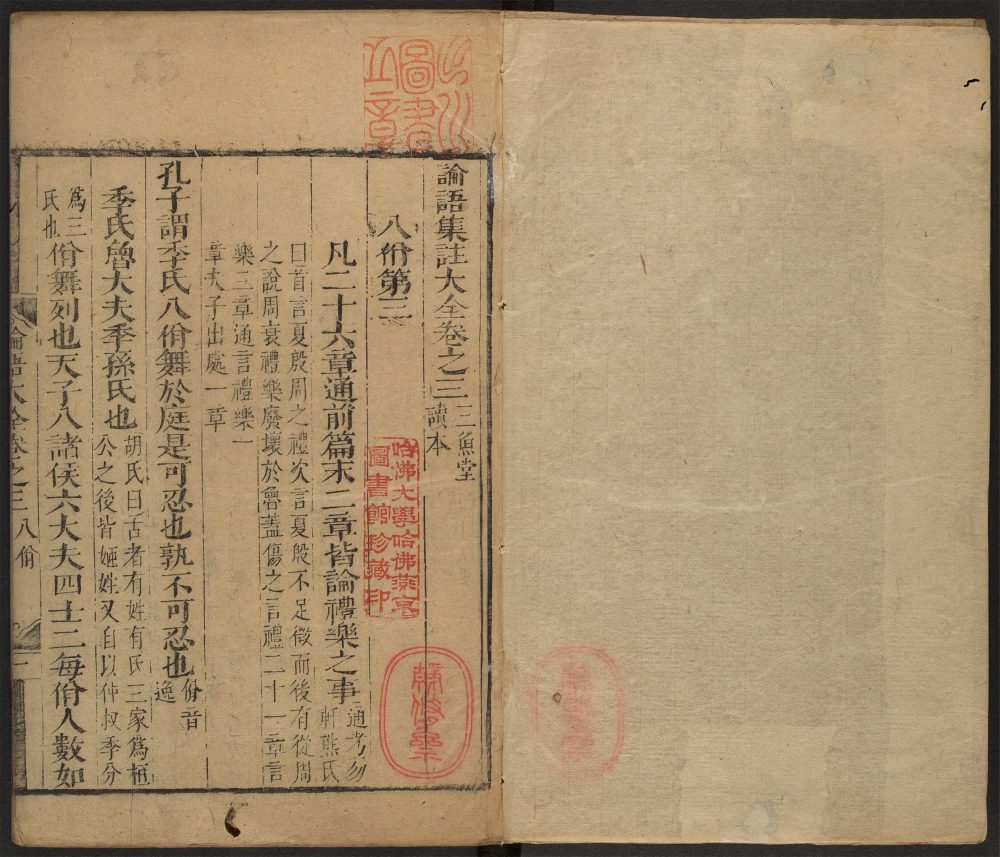 論語集註大全卷之三 三魚堂讀本
八佾第三
凡二十六章通前篇末二章皆論禮樂之事 通考勿軒熊氏
曰首言夏殷周之禮次言夏殷不足徵而後有從周
之說周衰禮樂廢壞於魯蓋傷之言禮二十一章言
樂三章通言禮樂一
章夫子出處一章
孔子謂季氏八佾舞於庭是可忍也孰不可忍也 佾音逸
季氏魯大夫季孫氏也 胡氏曰古者有姓有氏三家為桓公之後皆姬姓又自以仲叔季分
為三氏也 佾舞列也天子八諸侯六大夫四士二每佾人數如
論語大全卷之三 八佾 一
圖書
章
哈佛大學哈佛燕京
圖書館珍藏印